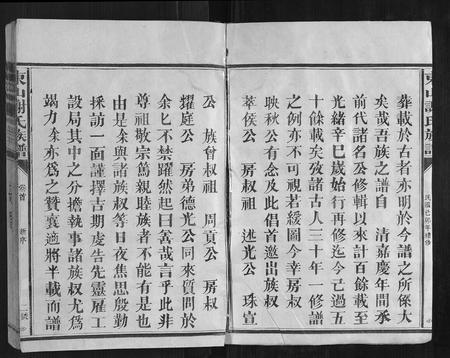 東山謝氏族譜
民國己卯年續修
葬載於古者亦明於今譜之所係大
矣哉吾族之譜自 清嘉慶年間承
前代諸名公修輯以來計百餘載至
光緒辛巳歲始行再修迄今已過五
十餘載矣攷諸古人三十年一修譜
之例亦不可視若緩圖今幸房叔
映秋公有余叔祖也倡首邀出族叔
萃侯公 房叔 述光公 珠宣
公 族曾叔祖 周貢公 房叔
耀庭公 房弟德光公同來質問於
余乜不禁躍然起曰善哉言乎此非
尊祖敬宗爲親睦族者不能有是也
由是余與諸族叔等日夜焦思殷勤
採訪一面謹擇古期虔告先靈雇工
設局其中之分擔執事諸族叔尤爲
竭力余亦爲之贊襄適將半載而譜
東山謝氏族譜
卷首
新序
二